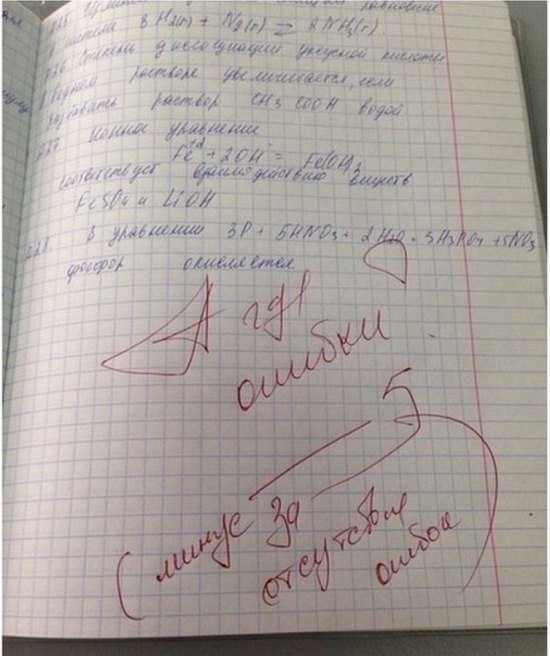 равновесие
системе 3H₂(г) + N₂(г) ⇄ 2NH₃(г).
Степень диссоциации уксусной кислоты
в водном растворе увеличивается, если
разбавить раствор CH₃COOH водой
Ионное уравнение
Fe⁺² + 2OH⁻ = Fe(OH)₂
соответствует взаимодействию веществ
FeSO₄ и LiOH
В уравнении 3P + 5HNO₃ + 2H₂O = 3H₃PO₄ + 5NO
фосфор окисляется
А где
ошибки
5
(минус за
отсутствие
ошибок)